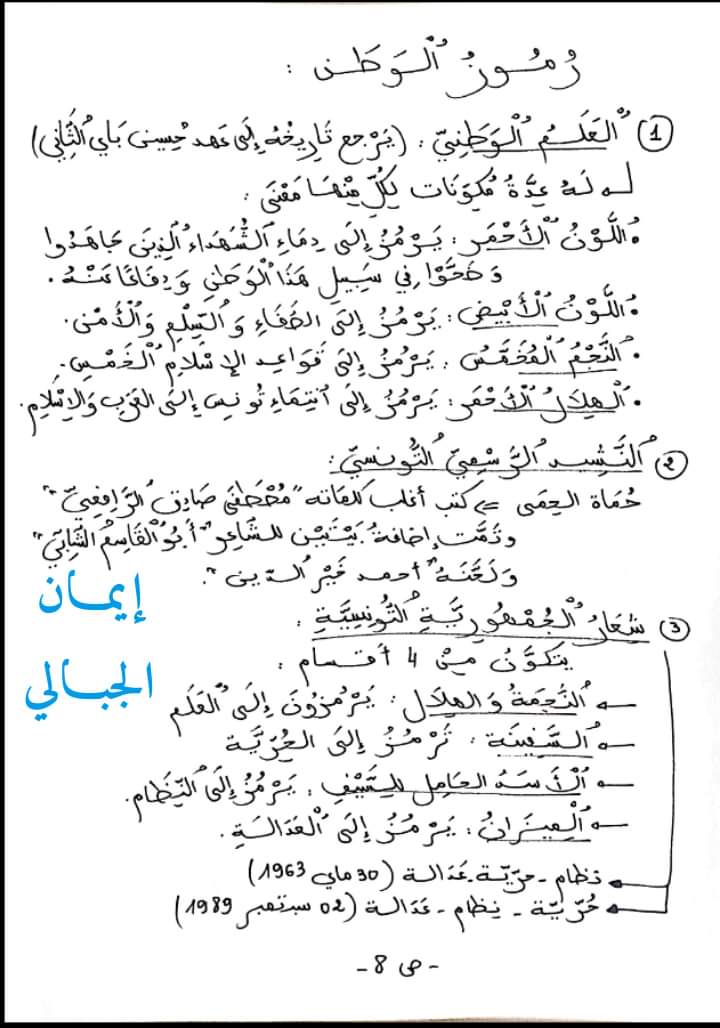 رُمُـــوزُ ٱلْـــوَطَـــنِ :
① ٱلْعَلَـــمُ ٱلْـوَطَنِيّ : (يَرْجع تَارِيخُهُ إِلَى عَهد حُسين بَاي ٱلثَّانِي)
لَـهُ عِدَّةُ مُكَوِّنَات لِكُلٍّ مِنْهَـا مَعْنَى :
• ٱللَّـوْنُ ٱلْأَحْمَر : يَـرْمُـزُ إِلَـى دِمَـاءِ ٱلشُّهَدَاء ٱلَّذِينَ جَاهَدُوا
وَ ضَحَّوْا فِي سَبِيلِ هَذَا ٱلْوَطَنِ وَ دِفَاعًا عَنْـهُ .
• ٱللَّـوْنُ ٱلْأَبْيَض : يَـرْمُـزُ إلَى الصَّفَاءِ وَ ٱلسِّلْمِ وَٱلْأَمْنِ .
• ٱلنَّجْمُ ٱلْمُخَمَّسُ : يَرْمُزُ إلَى قَوَاعِد الإسْلَامِ ٱلْخَمْسِ .
• ٱلْهِلَالُ ٱلْأَحْمَر : يَرْمُزُ إلَى ٱنْتِمَاءِ تُونس إِلَى العَرَب وَالإِسْلَامِ .
② ٱلنَّشِيد ٱلرَّسْمِيّ ٱلتُّونِسِيّ :
حُمَاة الحِمَى => كتب أغلب كلماته "مُصْطَفَى صَادِق ٱلرَّافِعِيّ"
وتَمَّت إضَافَةُ بَيْتَيْن للشَّاعِر "أَبُو ٱلْقَاسِم ٱلشَّابِّي"
وَ لَحَّنَـهُ "أحمد خَيْر ٱلـدِّين" .
إيمـان
الجبالي
③ شِعَـارُ ٱلْجُمْهُورِيَّـةِ ٱلتُّونِسِيَّةِ :
يَتَكَوَّنُ مِنْ 4 أقـسـام :
ٱلنَّجْمَةُ وَ الهِلَال : يَرْمُزُونَ إِلَى ٱلْعَلَم
ٱلسَّفِينَة : تَرْمُزُ إلَى الحُرِّيَّة
ٱلْأَسَـدُ الحَامِل لِلسَّيْفِ : يَرْمُزُ إِلَى ٱلنِّظَام .
ٱلْمِيـزَانُ : يَـرْمُـزُ إِلَى ٱلْعَدَالَـةِ .
نظام - حرّيّة - عَدَالـة (30 ماي 1963)
حُرّيّة - نِظَام - عَدَالـة (02 سبتمبر 1989)
- ص 8 -